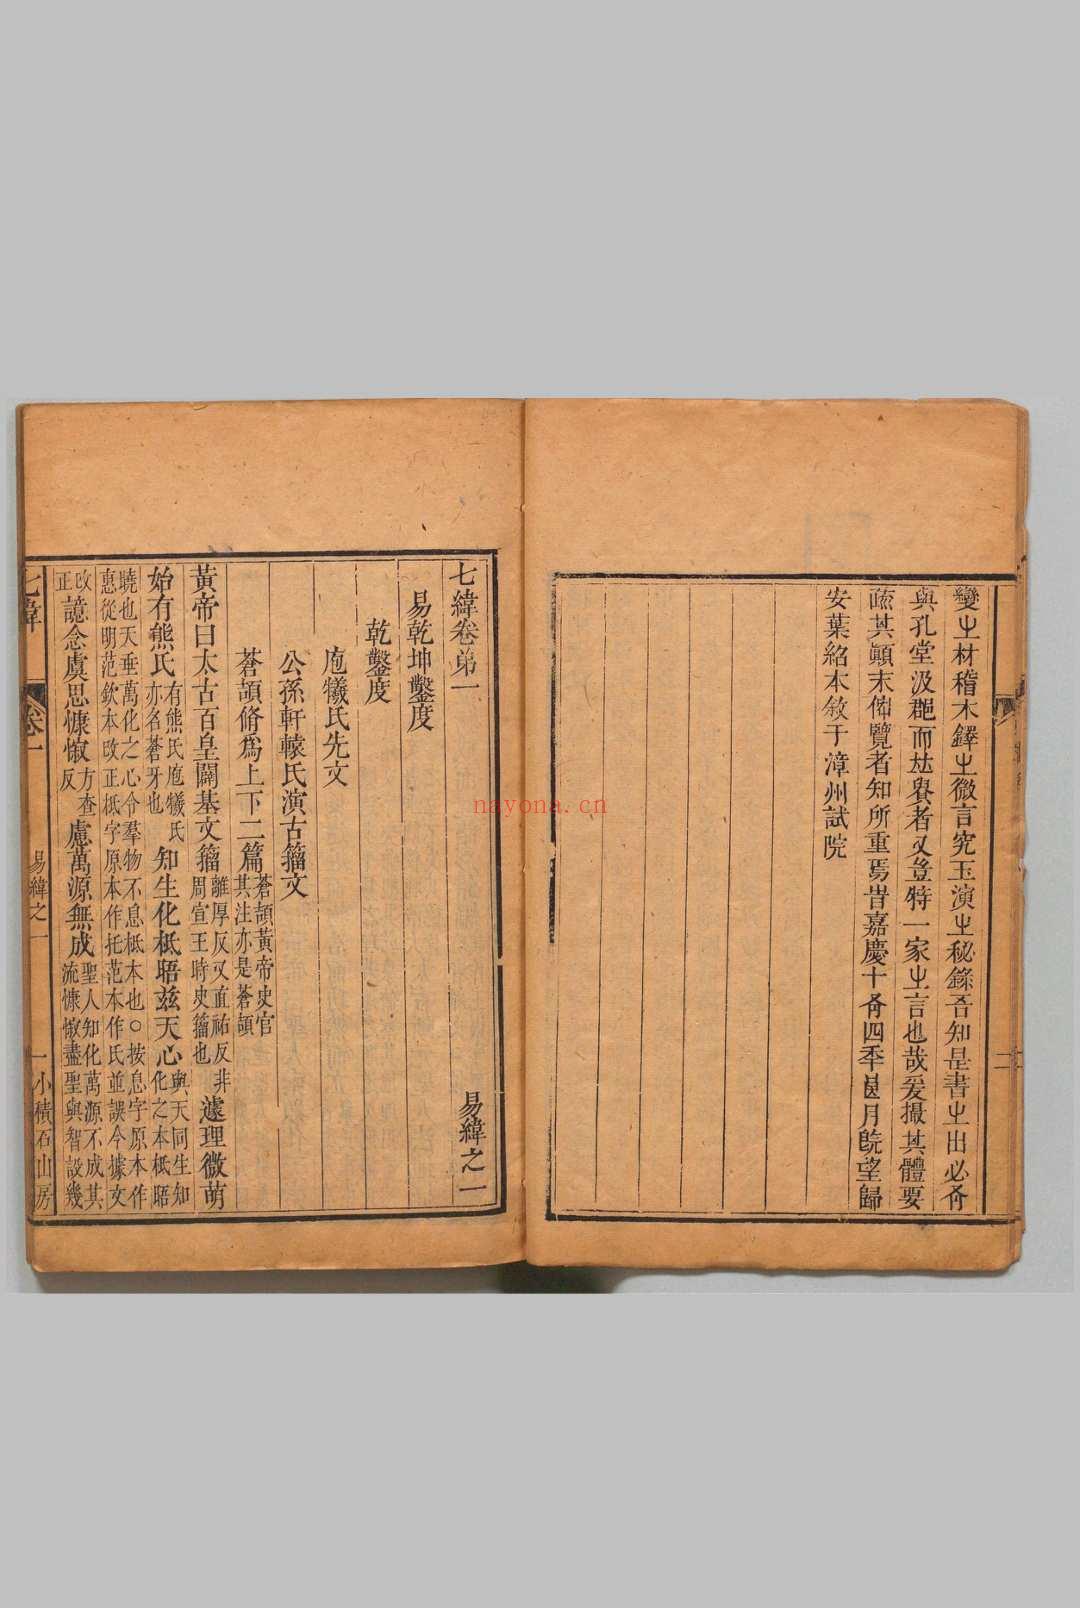 變㞢材稽木鐸㞢微言究玉演㞢秘錄吾知是書㞢出必㞢
與孔堂汲郡而𠀤㒷者又豈特一家㞢言也哉爰撮其體要
疏其顚末俾覽者知所重焉旹嘉慶十有四年月旣望歸
安葉紹本敘于漳州試院
二
七緯卷弟一
易緯之一
易乾坤鑿度
乾鑿度
庖犧氏先文
公孫軒轅氏演古籀文
蒼頡脩爲上下二篇蒼頡黃帝史官其注亦是蒼頡
黃帝曰太古百皇闢基文籀離厚反又直祐反周宣王時史籀也非遽理微萌
始有熊氏有熊氏庖犧氏亦名蒼牙也知生化柢晤茲天心與天同生知化之本柢晤
曉也天垂萬化之心令羣物不息柢本也○按息字原本作
惠從明范欽本改正柢字原本作托范本作氏並誤今據文
改正譩念虞思慷惙方查反慮萬源無成聖人知化萬源不成其流慷惙盡聖與智設幾
七緯
卷一
易緯之一
一
小積石山房
nayona.cn